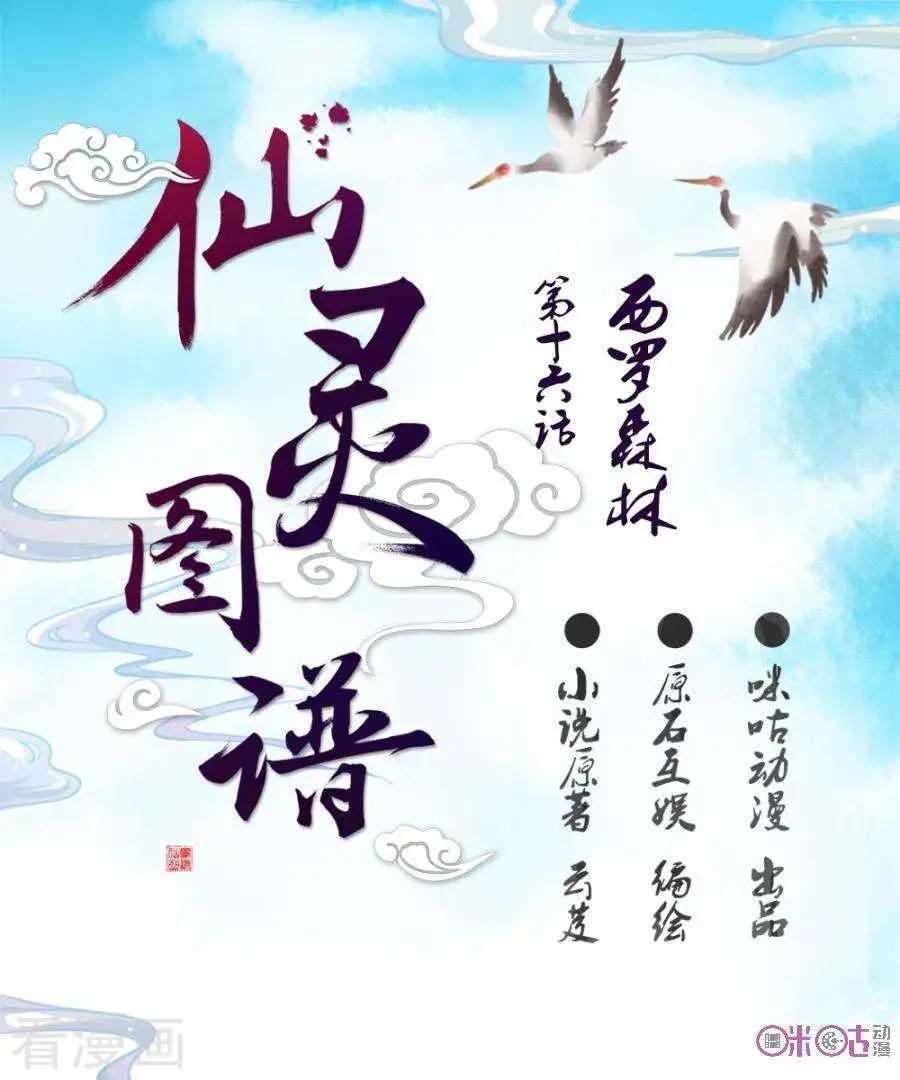 仙灵图谱
西罗森林
第十六话
咪咕动漫 出品
原石互娱 编绘
小说原著 云芨
看漫画
咪咕动漫